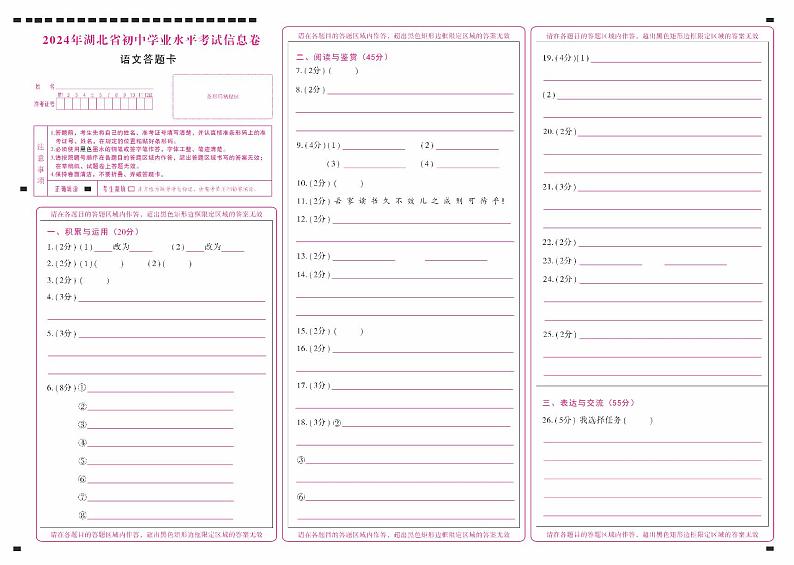 2024年湖北省初中学业水平考试信息卷
语文答题卡
姓 名
准考证号
条形码粘贴区
注意事项
1.答题前，考生先将自己的姓名、准考证号填写清楚，并认真核准条形码上的准
考证号、姓名，在规定的位置粘贴好条形码。
2.必须使用黑色墨水的钢笔或签字笔作答，字体工整、笔迹清楚。
3.请按照题号顺序在各题目的答题区域内作答，超出答题区域书写的答案无效；
在草稿纸、试题卷上答题无效。
4.保持卷面清洁，不要折叠、弄破答题卡。
正确填涂
考生禁填
请在各题目的答题区域内作答，超出黑色矩形边框限定区域的答案无效
一、积累与运用（20分）
1.(2分)(1) 改为 (2) 改为
2.(2分)(1)( ) (2)( )
3.(2分)( )
4.(3分)
5.(3分)
6.(8分)①
②
③
④
⑤
⑥
⑦
⑧
请在各题目的答题区域内作答，超出黑色矩形边框限定区域的答案无效
请在各题目的答题区域内作答，超出黑色矩形边框限定区域的答案无效
二、阅读与鉴赏（45分）
7.(2分)( )
8.(2分)
9.(4分)(1) (2)
(3) (4)
10.(2分)( )
11.(2分)吾家读书久不效儿之成则可待乎!
12.(2分)
13.(2分)
14.(2分)
15.(2分)( )
16.(2分)
17.(3分)
18.(3分)②
③
⑥
请在各题目的答题区域内作答，超出黑色矩形边框限定区域的答案无效
请在各题目的答题区域内作答，超出黑色矩形边框限定区域的答案无效
19.(4分)(1)
(2)
20.(2分)
21.(3分)
22.(2分)
23.(2分)
24.(2分)
25.(2分)
三、表达与交流（55分）
26.(5分)我选择任务( )
请在各题目的答题区域内作答，超出黑色矩形边框限定区域的答案无效